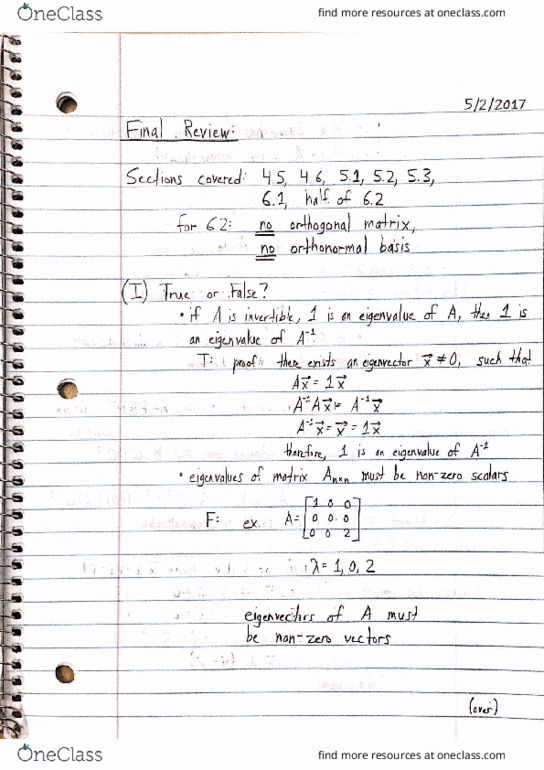 OneClass
find more resources at oneclass.com
5/2/2017
Final Review:
Sections covered: 4.5, 4.6, 5.1, 5.2, 5.3,
6.1, half of 6.2
for 6.2: no orthogonal matrix,
no orthonormal basis
(I) True or False?
• if A is invertible, 1 is an eigenvalue of A, then 1 is
an eigenvalue of A⁻¹
T: proof: there exists an eigenvector x⃗ ≠ 0, such that
Ax⃗ = 1x⃗
A⁻¹Ax⃗ = A⁻¹x⃗
A⁻¹x⃗ = x⃗ = 1x⃗
therefore, 1 is an eigenvalue of A⁻¹
• eigenvalues of matrix Aₙₓₙ must be non-zero scalars
F: ex. A = [1 0 0
0 0 0
0 0 2]
λ = 1, 0, 2
eigenvectors of A must
be non-zero vectors
(over)
OneClass
find more resources at oneclass.com